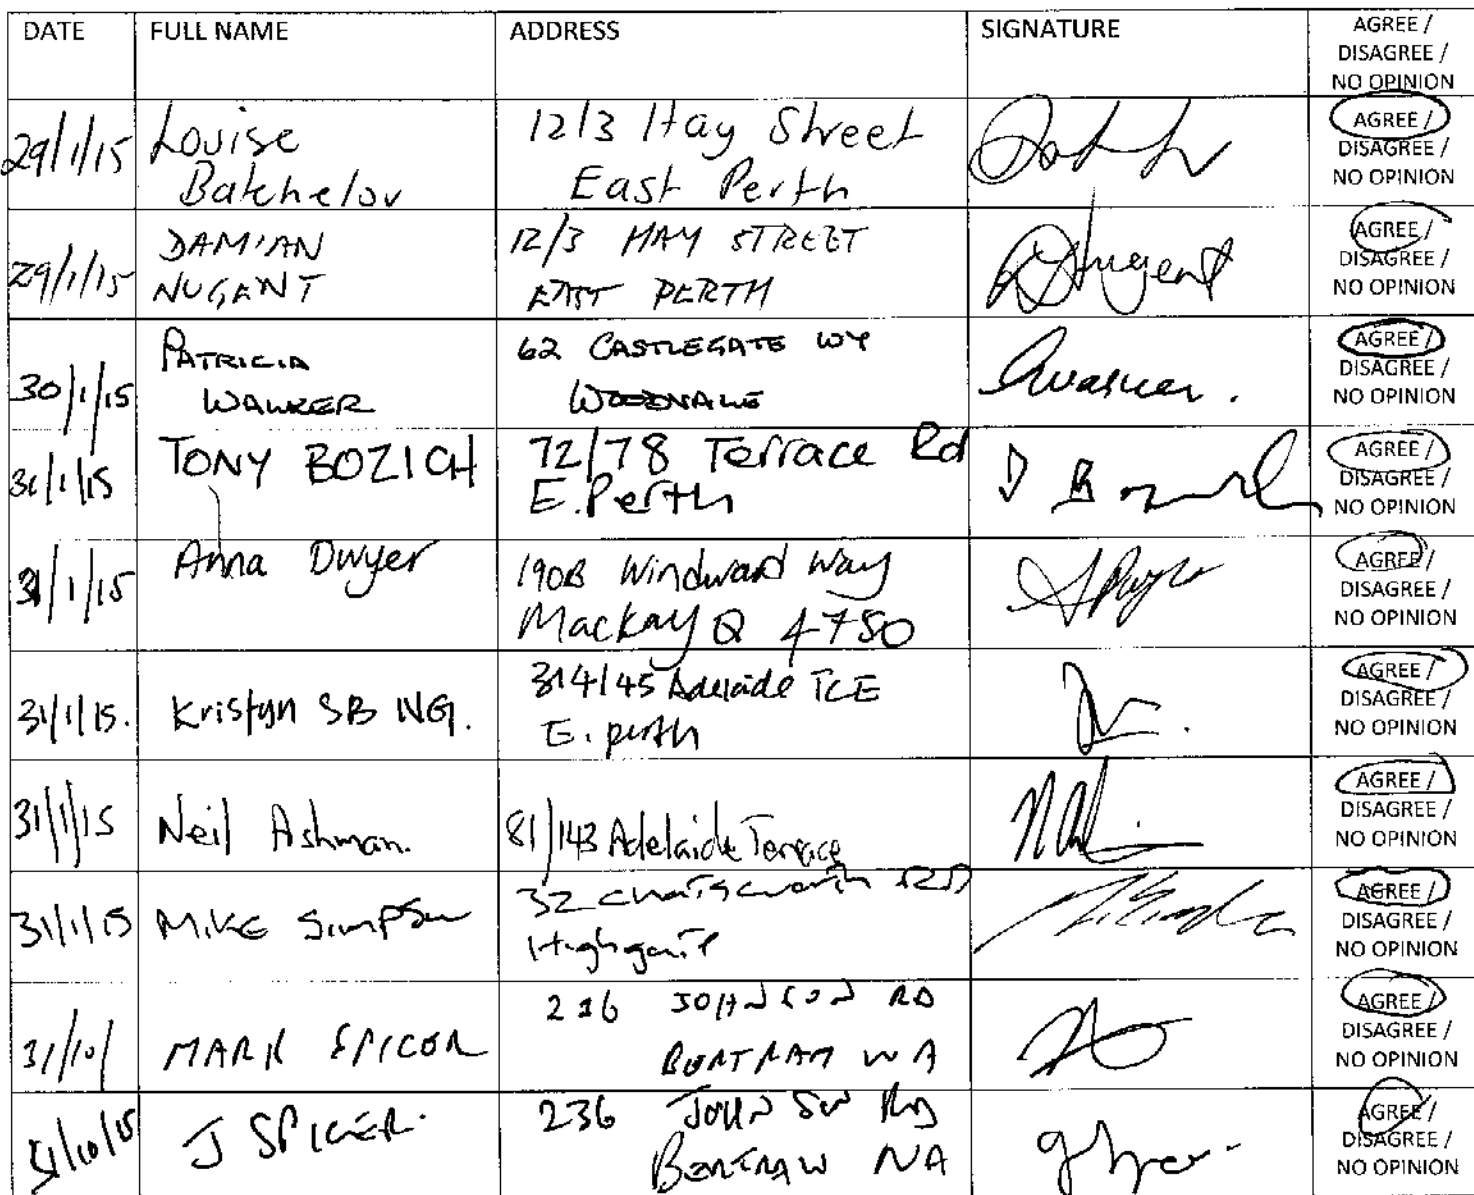 DATE FULL NAME ADDRESS SIGNATURE AGREE /
DISAGREE /
NO OPINION
29/1/15 Louise 12/3 Hay Street AGREE /
Batchelor East Perth DISAGREE /
NO OPINION
29/1/15 DAMIAN 12/3 HAY STREET AGREE /
NUGENT EAST PERTH DISAGREE /
NO OPINION
30/1/15 PATRICIA 62 CASTLEGATE WY AGREE /
WALKER WOODVALE DISAGREE /
NO OPINION
31/1/15 TONY BOZICH 72/78 Terrace Rd AGREE /
E. Perth DISAGREE /
NO OPINION
31/1/15 Anna Dwyer 190B Windward Way AGREE /
Mackay Q 4750 DISAGREE /
NO OPINION
31/1/15. Kristyn SB NG. 314/145 Adelaide TCE AGREE /
E. perth DISAGREE /
NO OPINION
31/1/15 Neil Ashman. 81/143 Adelaide Terrace AGREE /
DISAGREE /
NO OPINION
31/1/15 MIKE Simpson 32 Chatsworth RD AGREE /
Highgate DISAGREE /
NO OPINION
31/10/ MARK SPICER 236 JOHNSON RD AGREE /
BERTRAM WA DISAGREE /
NO OPINION
31/10/15 J SPICER. 236 JOHNSON RD AGREE /
BERTRAM WA DISAGREE /
NO OPINION